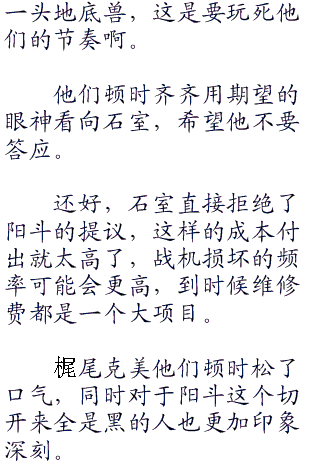 一头地底兽，这是要玩死他
们的节奏啊。
他们顿时齐齐用期望的
眼神看向石室，希望他不要
答应。
还好，石室直接拒绝了
阳斗的提议，这样的成本付
出就太高了，战机损坏的频
率可能会更高，到时候维修
费都是一个大项目。
梶尾克美他们顿时松了
口气，同时对于阳斗这个切
开来全是黑的人也更加印象
深刻。